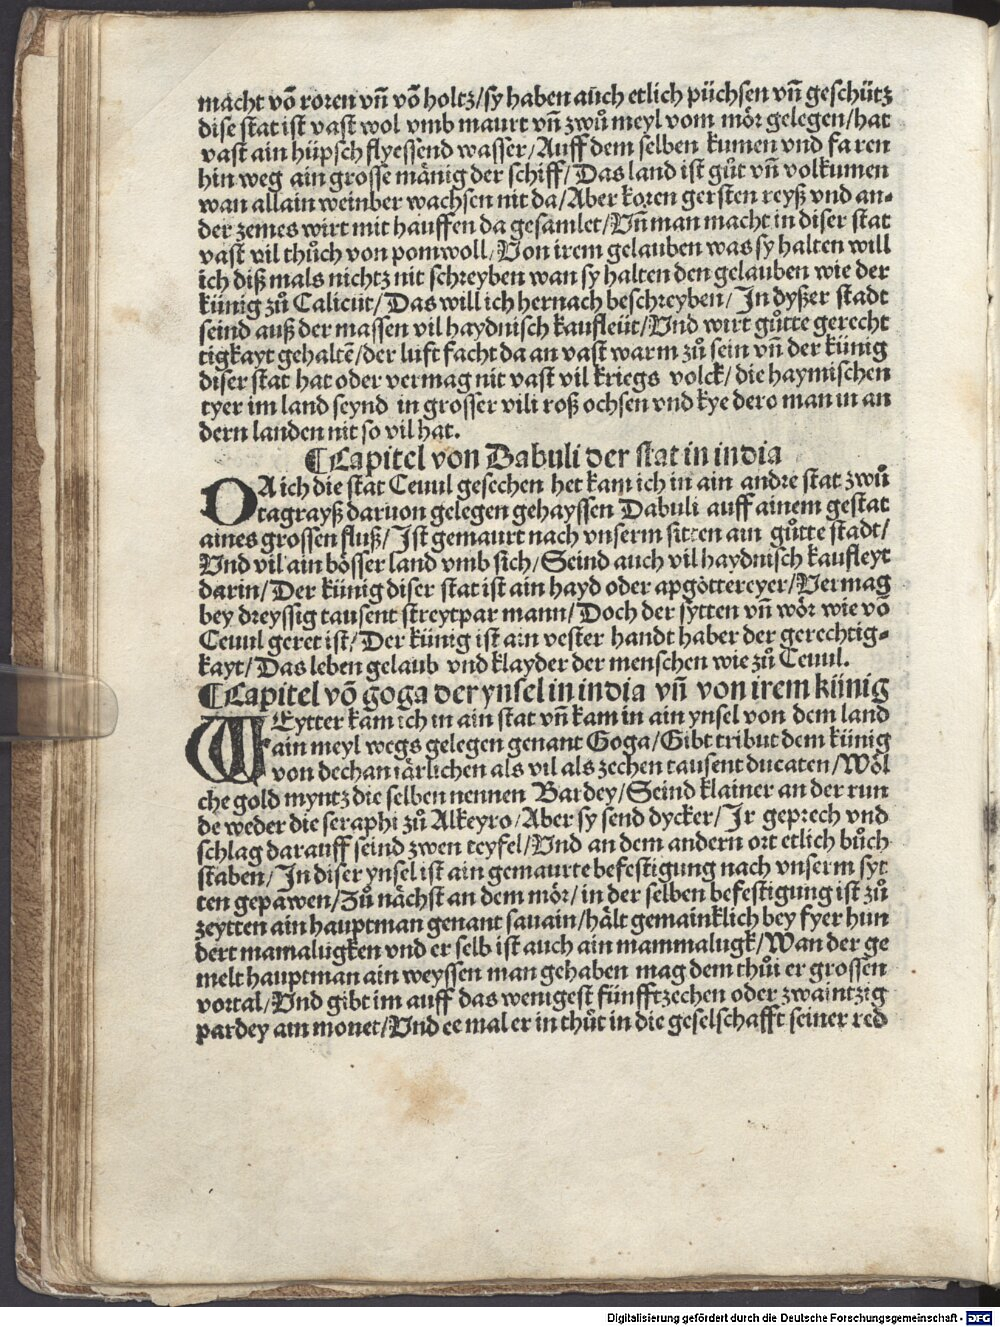 macht võ roren vñ võ holtz/sy haben auch etlich püchsen vñ geschütz
dise stat ist vast wol vmb maurt vñ zwů meyl vom mör gelegen/hat
vast ain hüpsch flyessend wasser/Auff dem selben kumen vnd faren
hin weg ain grosse mänig der schiff/Das land ist gůt vñ volkumen
wan allain weinber wachsen nit da/Aber koren gersten reyß vnd an-
der zemes wirt mit hauffen da gesamlet/Vñ man macht in diser stat
vast vil thůch von pomwoll/Von irem gelauben was sy halten will
ich diß mals nichtz nit schreyben wan sy halten den gelauben wie der
künig zů Calicut/Das will ich hernach beschreyben/In dyßer stadt
seind auß der massen vil haydnisch kaufleüt/Vnd wirt gůtte gerecht
tigkayt gehaltẽ/der luft facht da an vast warm zů sein vñ der künig
diser stat hat oder vermag nit vast vil kriegs volck/die haymischen
tyer im land seynd in grosser vili roß ochsen vnd kye dero man in an
dern landen nit so vil hat.
¶Capitel von Dabuli der stat in india
DA ich die stat Cevul gesechen het kam ich in ain andre stat zwů
tagrayß daruon gelegen gehayssen Dabuli auff ainem gestat
aines grossen fluß/Ist gemaurt nach vnserm sitten ain gůtte stadt/
Vnd vil ain bösser land vmb sich/Seind auch vil haydnisch kaufleyt
darin/Der künig diser stat ist ain hayd oder apgöttereyer/Vermag
bey dreyssig tausent streytpar mann/Doch der sytten vñ wör wie võ
Cevul geret ist/Der künig ist ain vester handt haber der gerechtig-
kayt/Das leben gelaub vnd klayder der menschen wie zů Cevul.
¶Capitel võ goga der ynsel in india vñ von irem künig
WEytter kam ich in ain stat vñ kam in ain ynsel von dem land
ain meyl wegs gelegen genant Goga/Gibt tribut dem künig
von dechan iärlichen als vil als zechen tausent ducaten/Wöl
che gold myntz die selben nennen Bardey/Seind klainer an der run
de weder die seraphi zů Alkeyro/Aber sy send dycker/Ir geprech vnd
schlag darauff seind zwen teyfel/Vnd an dem andern ort etlich bůch
staben/In diser ynsel ist ain gemaurte befestigung nach vnserm syt
ten gepawen/Zů nächst an dem mör/in der selben befestigung ist zů
zeytten ain hauptman genant sauain/hält gemainklich bey fyer hun
dert mamalugken vnd er selb ist auch ain mammalugk/Wan der ge
melt hauptman ain weyssen man gehaben mag dem thůt er grossen
vortal/Vnd gibt im auff das wenigest fünfftzechen oder zwaintzig
pardey ain monet/Vnd ee mal er in thůt in die geselschafft seiner red
Digitalisierung gefördert durch die Deutsche Forschungsgemeinschaft - DFG